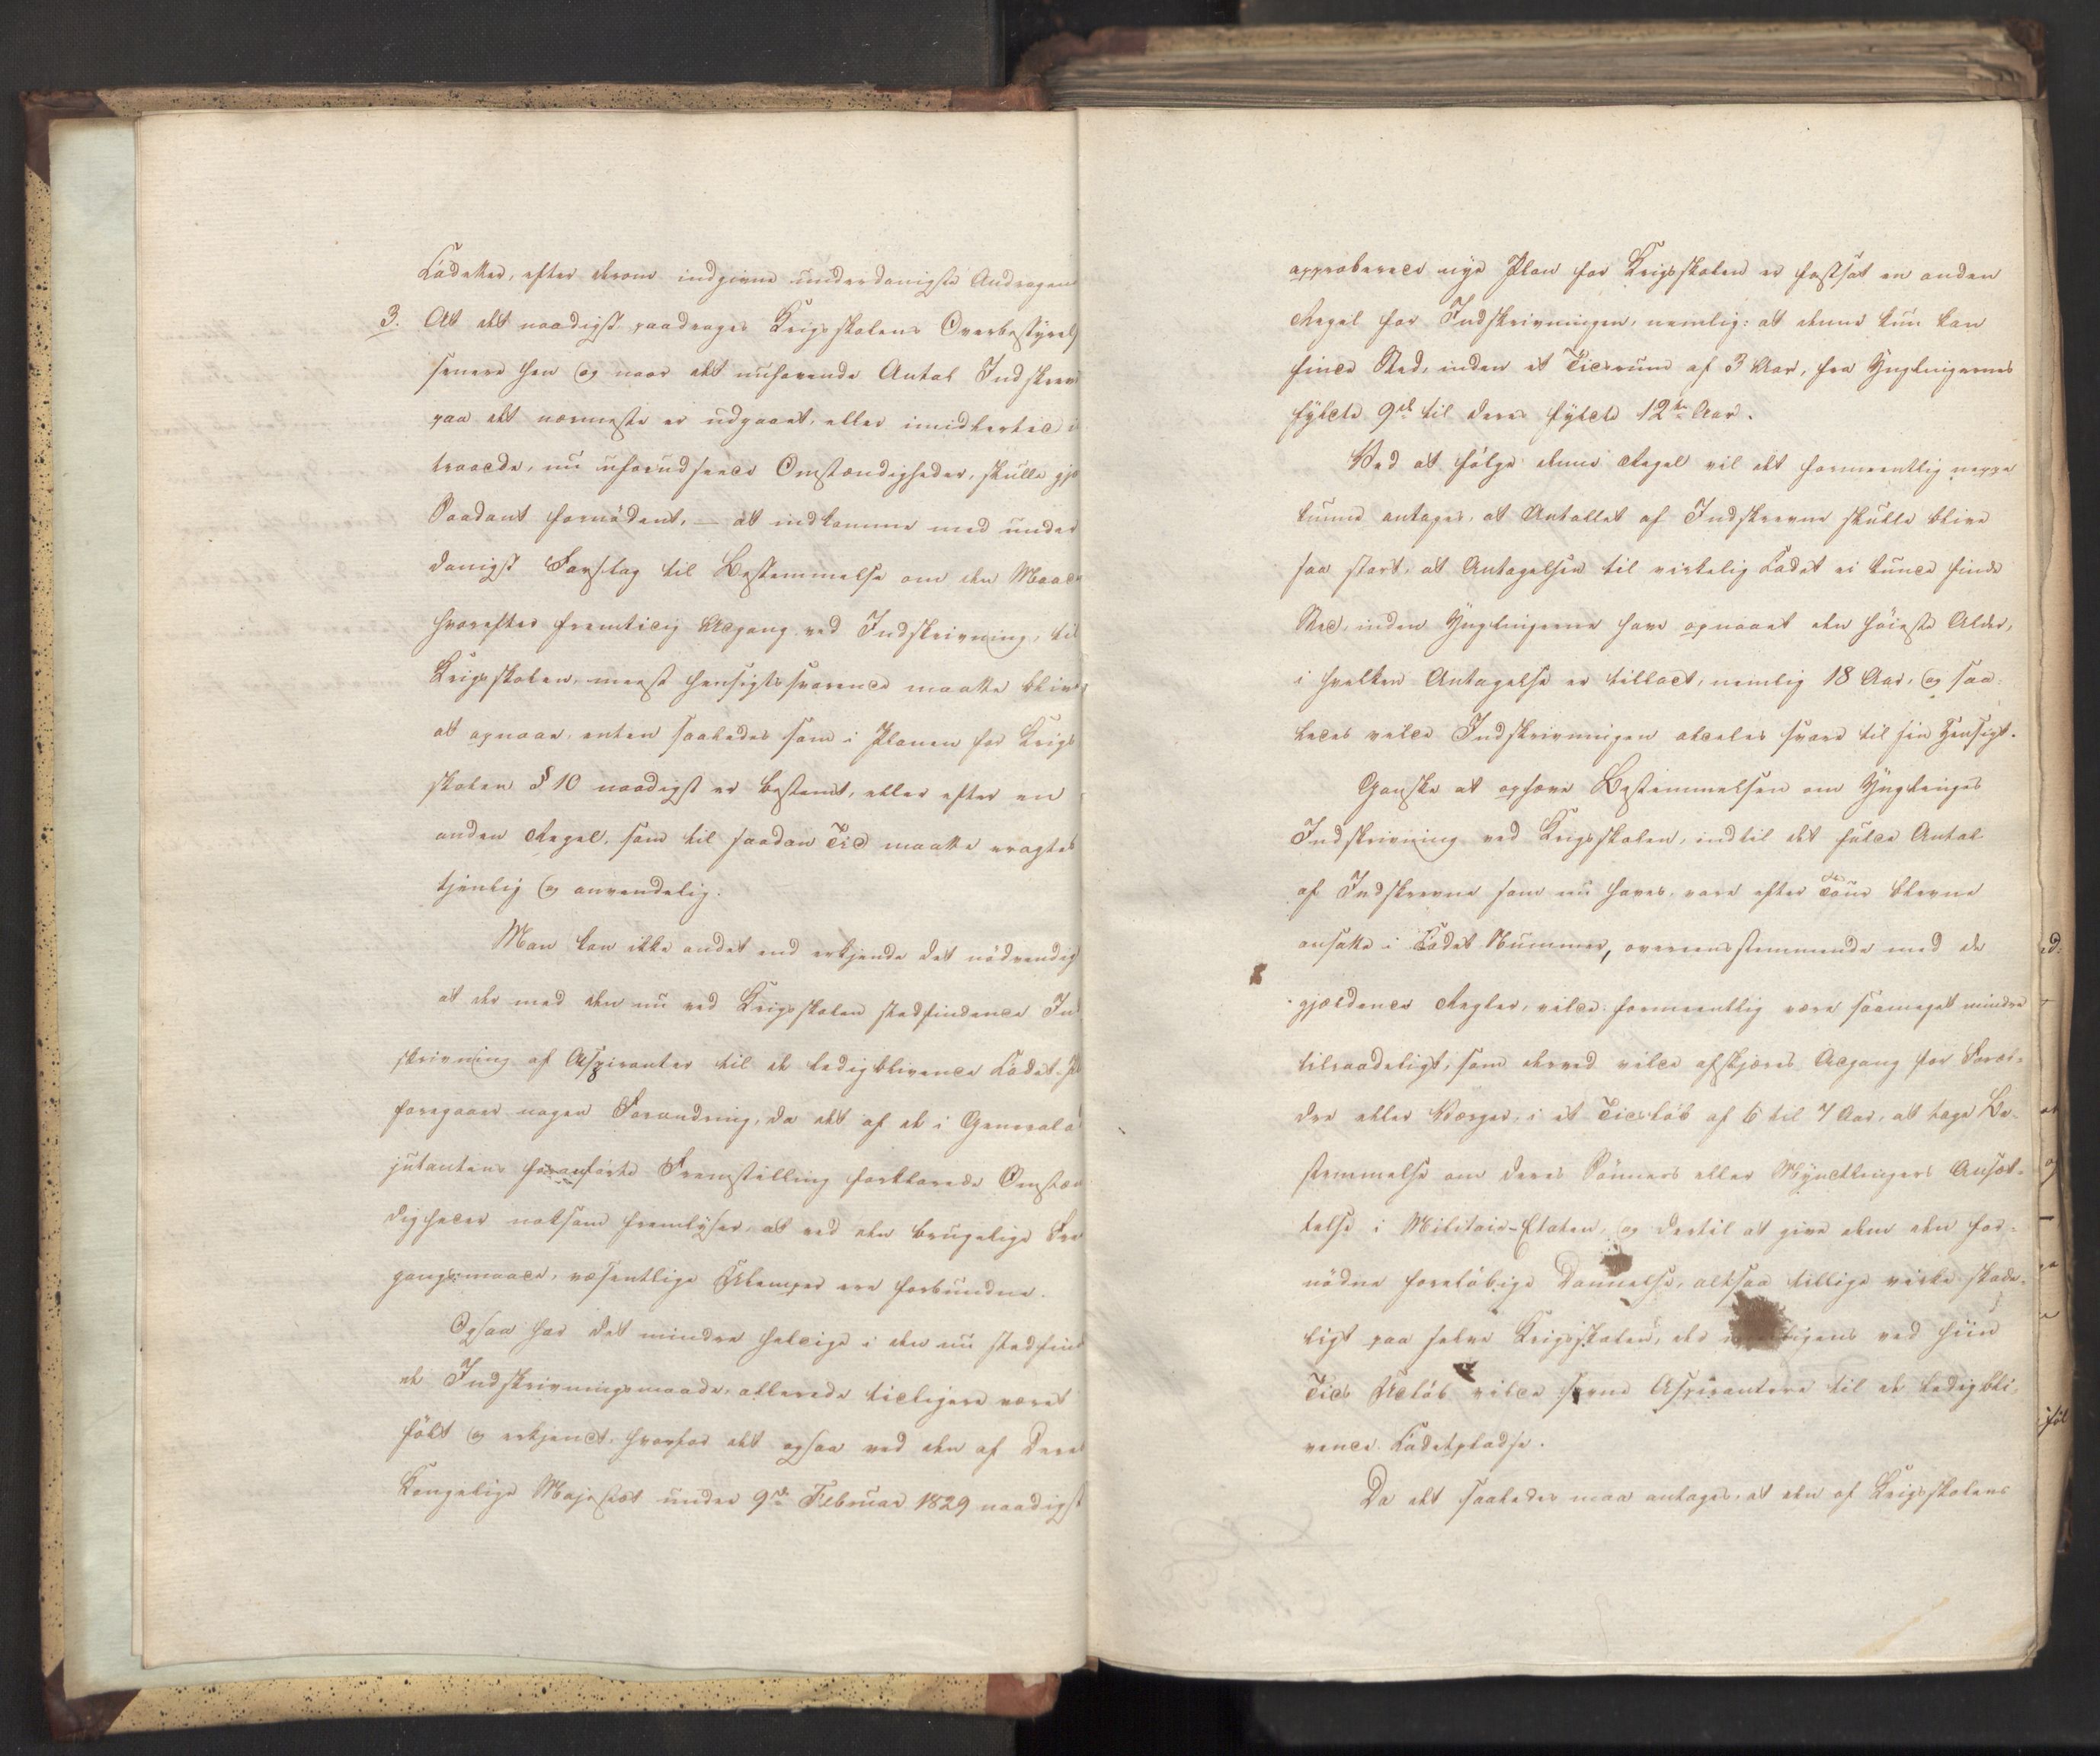 Cadetter, efter derom indgivne underdanigste Andragen
3. At det naadigst paadrages Krigsskolens Overbestyrels
senere hen og naar det nuhavende Antal Indskrev
paa det nærmeste er udgaaet, eller imidlertid i
traadte, nu uforudseede Omstændigheder, skulle gjø
Saadant fornödent, — at indkomme med under
danigst Forslag til Bestemmelse om den Maad
hvorefter fremtidig Adgang ved Indskrivning, til
Krigsskolen, meest hensigtssvarende maatte blive
at opnaae, enten saaledes som i Planen for Krigs
skolen § 10 naadigst er bestemt, eller efter en
anden Regel, som til saadan Tid maatte eragtes
tjenlig og anvendelig.
Man kan ikke andet end erkjende det nödvendigt
at der med den nu ved Krigsskolen stedfindende Ind
skrivning af Aspiranter til de ledigblivende Cadet-Pl
foregaaer nogen Forandring, da det af de i Generalad
jutantens foranførte Fremstilling forklarede Omstæn
digheder noksom fremlyser, at ved den brugelige Fre
gangsmaade, væsentlige Ulemper ere forbundne.
Ogsaa har det mindre heldige i den nu stedfind
de Indskrivningsmaade, allerede tidligere været
fölt og erkjendt, hvorfor det ogsaa ved den af Deres
Kongelige Majestæt under 9de Februar 1829 naadigst
approberede nye Plan for Krigsskolen er fastsat en anden
Regel for Indskrivningen, nemlig: at denne kun kan
finde Sted, inden et Tidsrum af 3 Aar, fra Ynglingernes
fyldte 9de til deres fyldte 12te Aar.
Ved at fölge denne Regel vil det formeentlig neppe
kunne antages, at Antallet af Indskrevne skulle blive
saa stort, at Antagelsen til virkelig Cadet ei kunde finde
Sted, inden Ynglingerne have opnaaet den höieste Alder,
i hvilken Antagelse er tilladt, nemlig 18 Aar, og saa-
ledes vilde Indskrivningen aldeles svare til sin Hensigt.
Ganske at ophæve Bestemmelsen om Ynglinges
Indskrivning ved Krigsskolen, indtil det fulde Antal
af Indskrevne som nu haves, vare efter Tour blevne
ansatte i Cadet Nummer, overeensstemmende med de
gjældende Regler, vilde formeentlig være saameget mindre
tilraadeligt, som derved vilde afskjæres Adgang for Foræl-
dre eller Værger, i et Tidslöb af 6 til 7 Aar, at tage Be-
stemmelse om deres Sönners eller Myndtlingers Ansæt-
telse i Militair-Etaten, og dertil at give dem den for-
nödne forelöbige Dannelse, altsaa tillige virke skade-
ligt paa selve Krigsskolen, der ved hiin
Tids Udlöb vilde savne Aspirantere til de ledigbli-
vende Cadetpladse.
Da det saaledes maa antages, at den af Krigsskolens